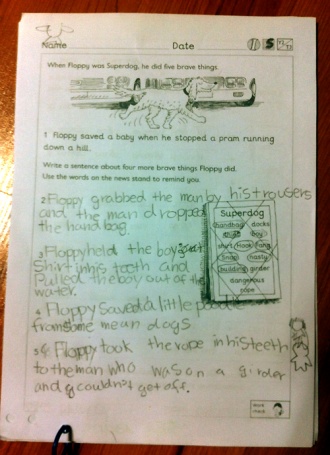 Name Date
When Floppy was Superdog, he did five brave things.
1 Floppy saved a baby when he stopped a pram running
down a hill.
Write a sentence about four more brave things Floppy did.
Use the words on the news stand to remind you.
2 Floppy grabbed the man by his trousers
and the man dropped
the handbag.
3 Floppy held the boy
Shirt in his teeth and
Pulled the boy out of the
water.
4 Floppy Saved a little poodle
from some mean dogs
5 Floppy took the rope in his teeth
to the man who was on a girder
and couldn't get off.
Superdog
handbag docks
boy
shirt
nasty
building girder
dangerous
rope